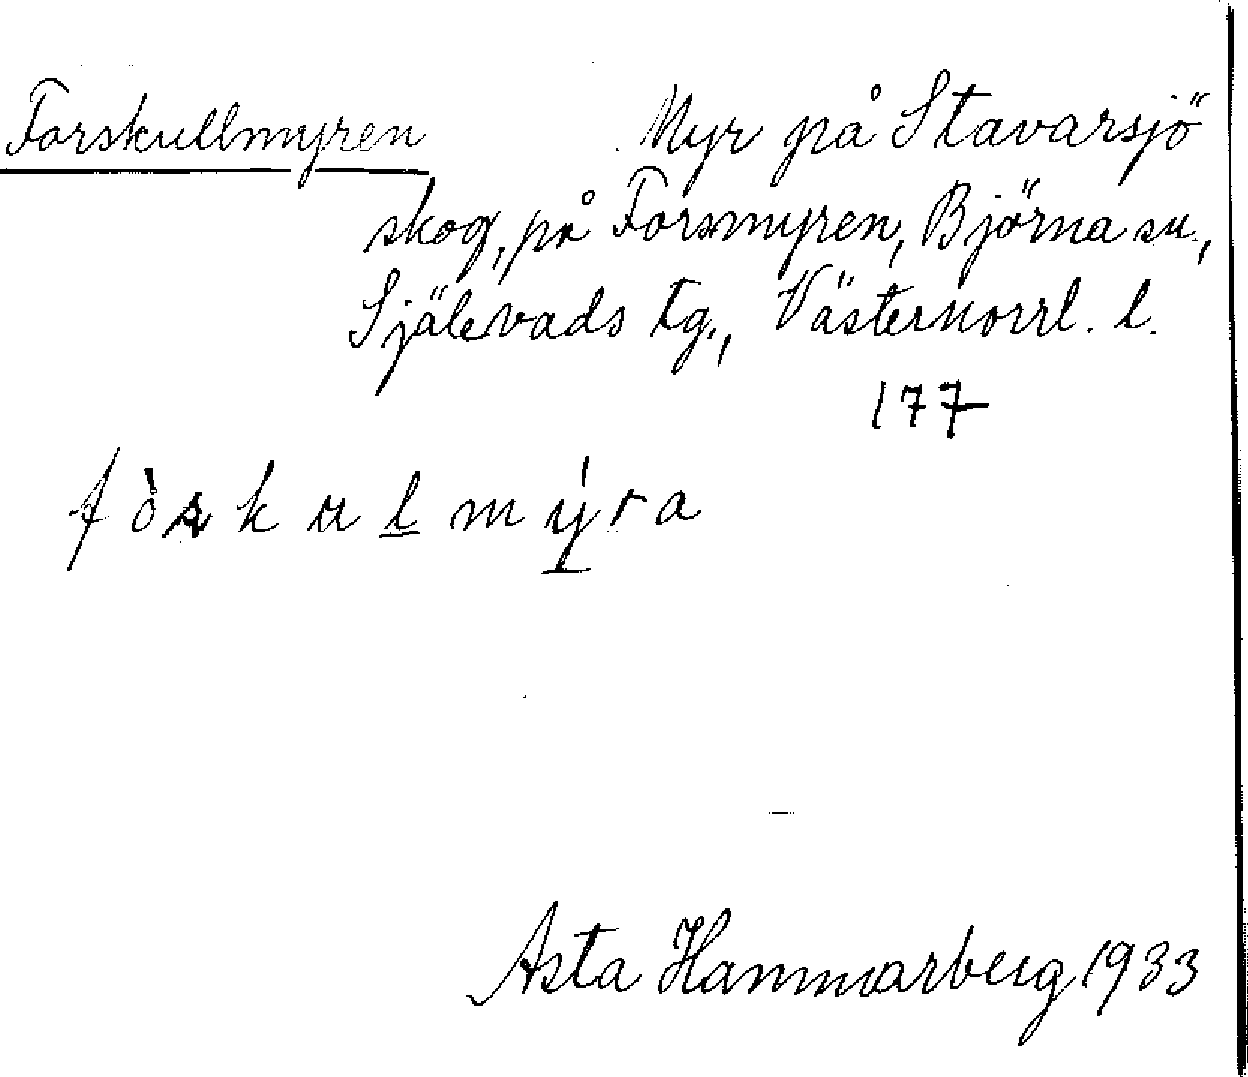 Forskullmyren Myr på Stavarsjö
skog, på Forsmyren, Björna sn.,
Själevads tg., Västernorrl. l.
177
fòskulmýra
Asta Hammarberg 1933